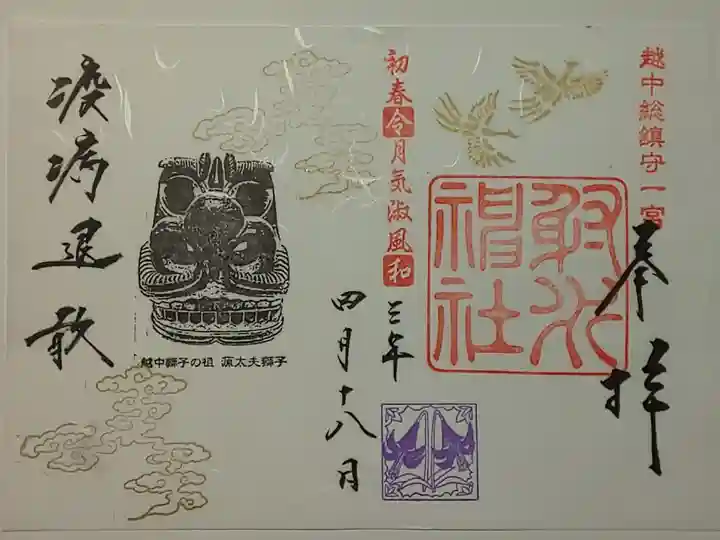 越中総鎮守一宮
奉拝
射水神社
初春令月気淑風和
三年
四月十八日
疫病退散
越中獅子の祖 源太夫獅子